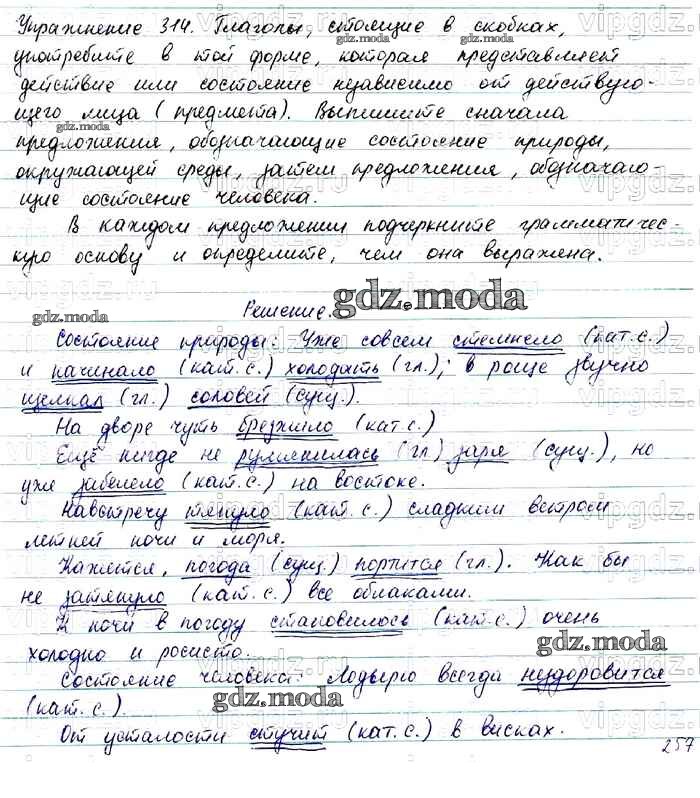 Упражнение 314. Глаголы, стоящие в скобках,
употребите в той форме, которая представляет
действие или состояние независимо от действую-
щего лица (предмета). Выпишите сначала
предложения, обозначающие состояние природы,
окружающей среды, затем предложения, обозначаю-
щие состояние человека.
В каждом предложении подчеркните граммматичес-
кую основу и определите, чем она выражена.
Решение.
gdz.moda
Состояние природы: Уже совсем стемнело (кат.с.)
и начинало (кат.с.) холодать (гл.); в роще звучно
щелкал (гл.) соловей (сущ.).
На дворе чуть брезжило (кат.с.)
Ещё нигде не румянилась (гл) заря (сущ.), но
уже забелело (кат.с.) на востоке.
Навстречу тянуло (кат.с.) сладким ветром
летней ночи и моря.
Кажется, погода (сущ.) портится (гл.). Как бы
не затянуло (кат.с.) все облаками.
К ночи в погоду становилось (кат.с.) очень
холодно и росисто.
gdz.moda
Состояние человека: Лодырю всегда нездоровится
(кат.с.).
gdz.moda
От усталости стучит (кат.с.) в висках.
257